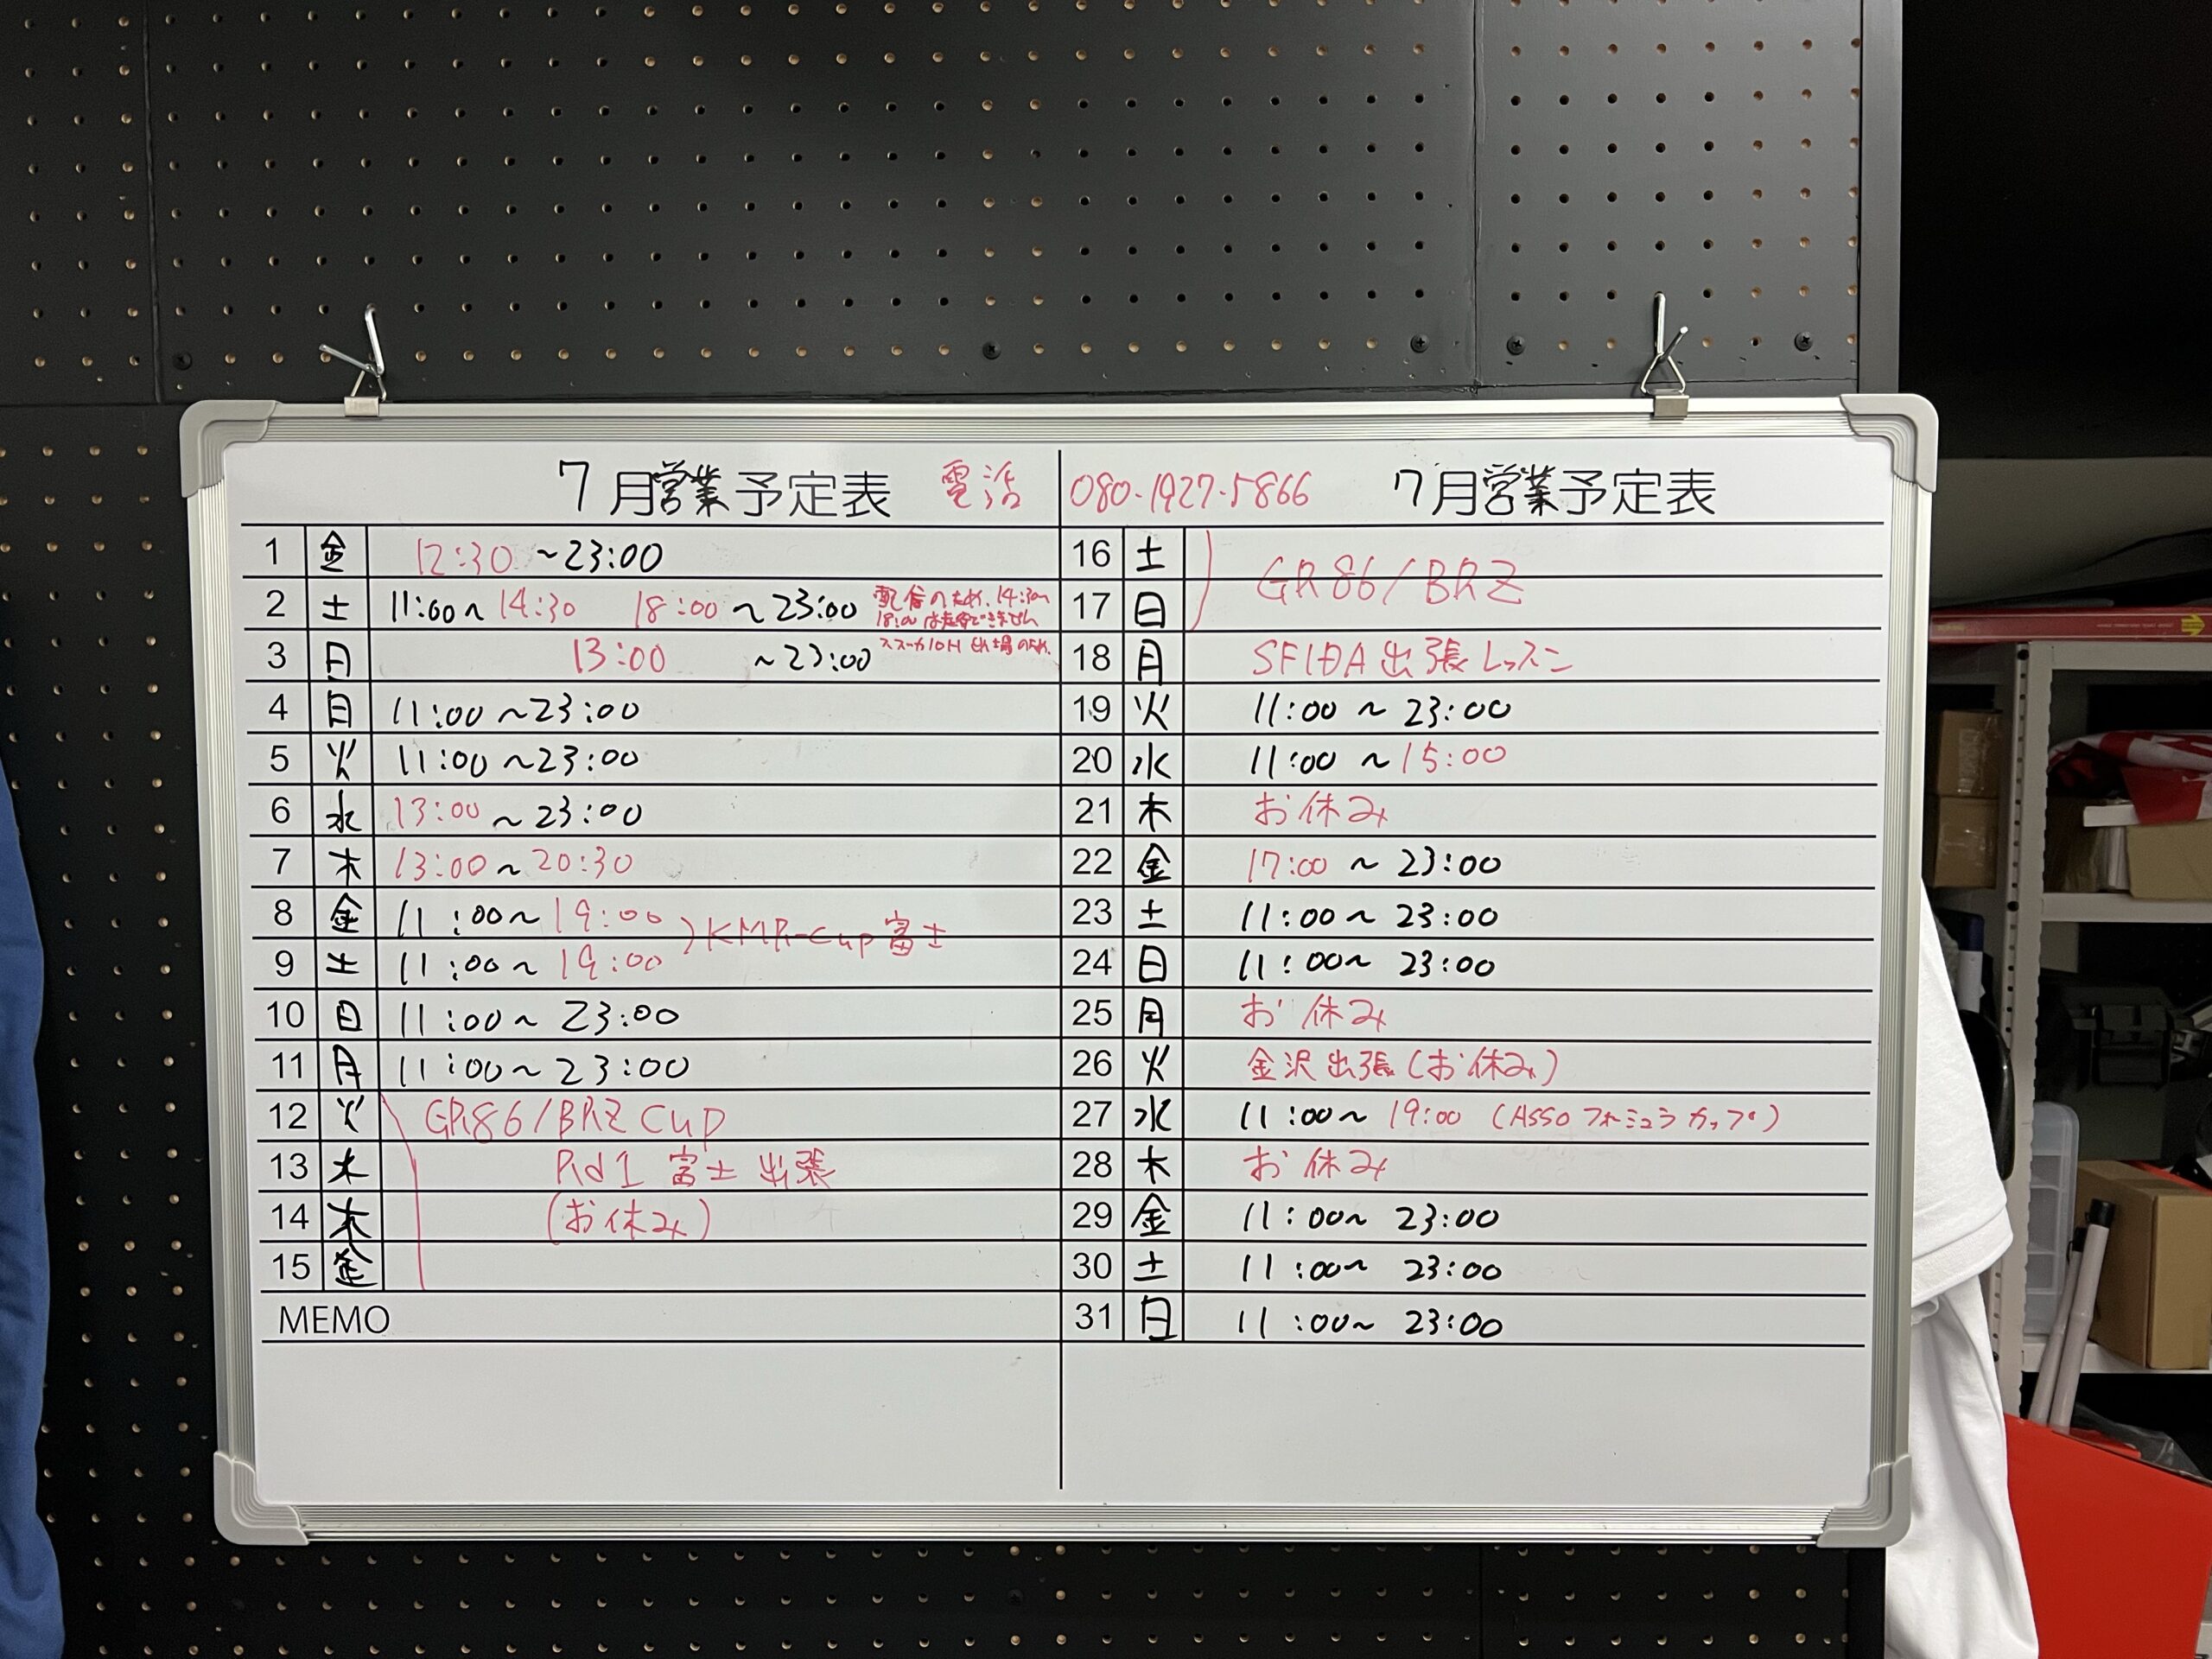 7月営業予定表 電話 080-1927-5866
1 金 12:30 ~23:00
2 土 11:00~14:30 18:00 ~23:00 配信のため、14:30~
18:00は走行できません
3 日 13:00 ~23:00 スズーカ10H 出場のため、
4 日 11:00~23:00
5 火 11:00~23:00
6 水 13:00~23:00
7 木 13:00~20:30
8 金 11:00~19:00
KMR-Cup 富士
9 土 11:00~19:00
10 日 11:00~23:00
11 月 11:00~23:00
12 火 GR86/BRZ CUP
13 木 Rd1 富士 出張
14 木 (お休み)
15 金
MEMO
7月営業予定表
16 土 GR86/BRZ
17 日
18 月 SFIDA 出張レッスン
19 火 11:00 ~ 23:00
20 水 11:00 ~15:00
21 木 お休み
22 金 17:00 ~ 23:00
23 土 11:00~ 23:00
24 日 11:00~ 23:00
25 月 お休み
26 火 金沢出張(お休み)
27 水 11:00~ 19:00 (ASSOフォーミュラカップ)
28 木 お休み
29 金 11:00~ 23:00
30 土 11:00~ 23:00
31 日 11:00~ 23:00